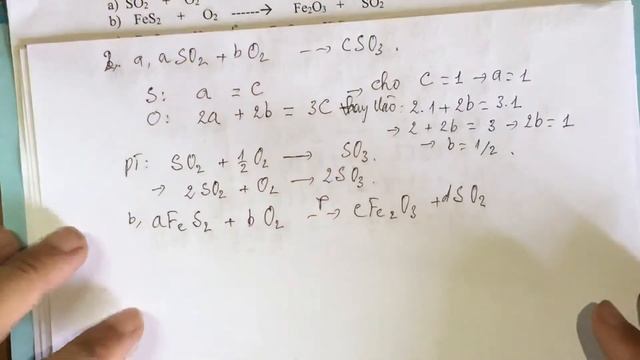 a) SO2 + O2
b) FeS2 + O2 ------→ Fe2O3 + SO2
2, a, aSO2 + bO2 --→ cSO3.
S: a = c → cho c = 1 → a = 1
O: 2a + 2b = 3c thay vào: 2.1 + 2b = 3.1
→ 2 + 2b = 3 → 2b = 1
→ b = 1/2.
pT: SO2 + 1/2 O2 → SO3.
→ 2SO2 + O2 → 2SO3.
b, aFeS2 + bO2 --→ cFe2O3 + dSO2